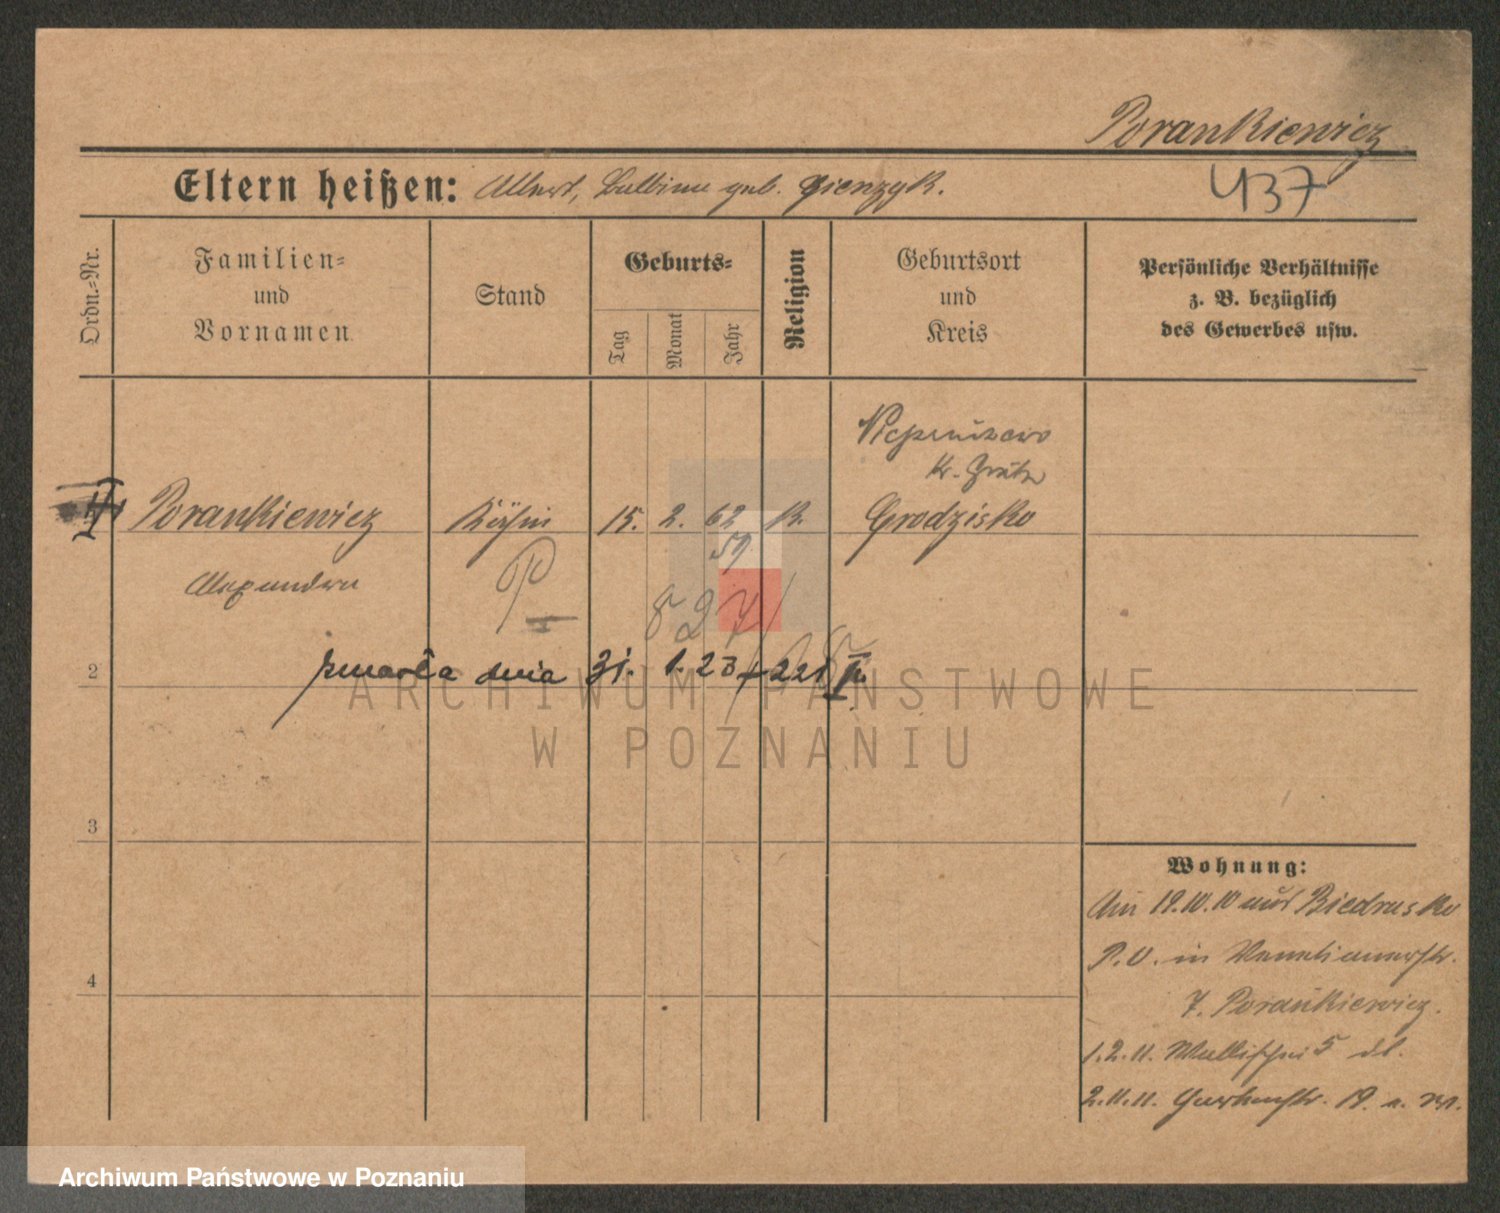 Porankiewicz
Eltern heißen: Albert, Balbina geb. Gienzyk.
437
Ordn.-Nr.
Familien-
und
Vornamen
Stand
Geburts-
Tag
Monat
Jahr
Religion
Geburtsort
und
Kreis
Persönliche Verhältnisse
z. B. bezüglich
des Gewerbes usw.
Kr. Grätz
Porankiewicz Köchin 15. 2. 62 K. Grodzisko
59
Alexandra
P
2
zmarła dnia 31. 1. 23 221
ARCHIWUM PAŃSTWOWE
W POZNANIU
3
Wohnung:
Am 19.10.10 aus Biedrusko
P.O. in
7. Porankiewicz.
4
1.2.11. Wallischei 5
2.11.11. Gartenstr. 19.
Archiwum Państwowe w Poznaniu